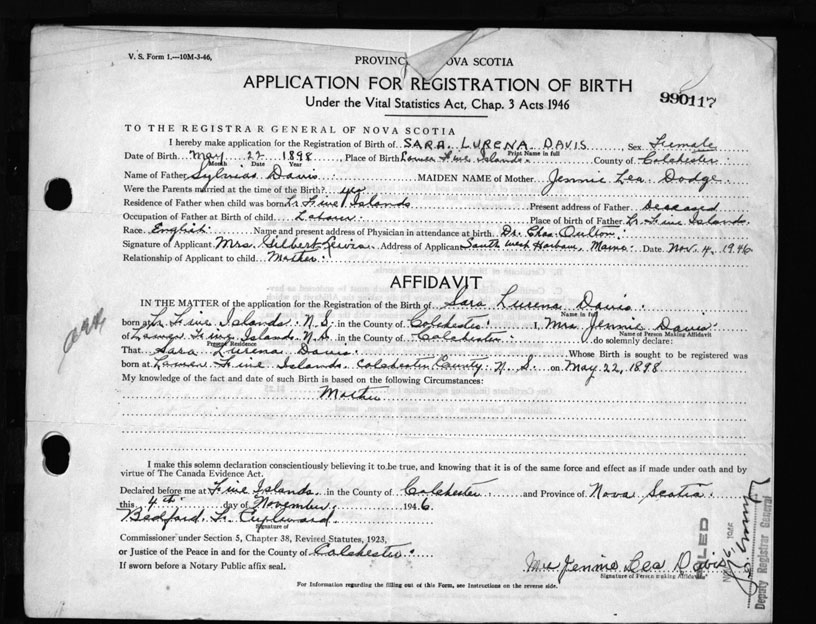 V. S. Form 1.—10M-3-46,
PROVINC NOVA SCOTIA
APPLICATION FOR REGISTRATION OF BIRTH
Under the Vital Statistics Act, Chap. 3 Acts 1946
990117
TO THE REGISTRAR GENERAL OF NOVA SCOTIA
I hereby make application for the Registration of Birth of SARA LURENA DAVIS Sex Female
Print Name in full
Date of Birth May 22 1898 Place of Birth Lower Five Islands. County of Colchester
Month Date Year
Name of Father Sylvias Davis MAIDEN NAME of Mother Jennie Lea Dodge
Were the Parents married at the time of the Birth? yes
Residence of Father when child was born Lr Five Islands Present address of Father Deceased
Occupation of Father at Birth of child. Laborer Place of Birth of Father Lr. Five Islands.
Race. English Name and present address of Physician in attendance at birth. Dr. Chas. Oulton
Signature of Applicant Mrs. Gilbert Lewis Address of Applicant South West Harbour, Maine Date Nov. 4, 1946
Relationship of Applicant to child? Mother
AFFIDAVIT
IN THE MATTER of the application for the Registration of the Birth of Sara Lurena Davis
Name in full
born at Lr Five Islands. N.S. in the County of Colchester I, Mrs Jennie Davis
Name of Person Making Affidavit
of Lower Five Islands N.S. in the County of Colchester do solemnly declare:
Present Residence
That Sara Lurena Davis Whose Birth is sought to be registered was
born at Lower Five Islands. Colchester County N. S. on May 22, 1898
My knowledge of the fact and date of such Birth is based on the following Circumstances:
Mother
I make this solemn declaration conscientiously believing it to be true, and knowing that it is of the same force and effect as if made under oath and by
virtue of The Canada Evidence Act.
Declared before me at Five Islands. in the County of Colchester and Province of Nova Scotia.
this 4th day of November 1946
Bedford
Signature of
Commissioner under Section 5, Chapter 38, Revised Statutes, 1923,
or Justice of the Peace in and for the County of Colchester
If sworn before a Notary Public affix seal.
Mrs Jennie Lea Davis
Signature of Person making Affidavit
For Information regarding the filling out of this Form, see Instructions on the reverse side.
Deputy Registrar General